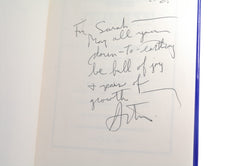 For Sarah —
May all your
down-to-earthing
be full of joy
+ years of
growth —